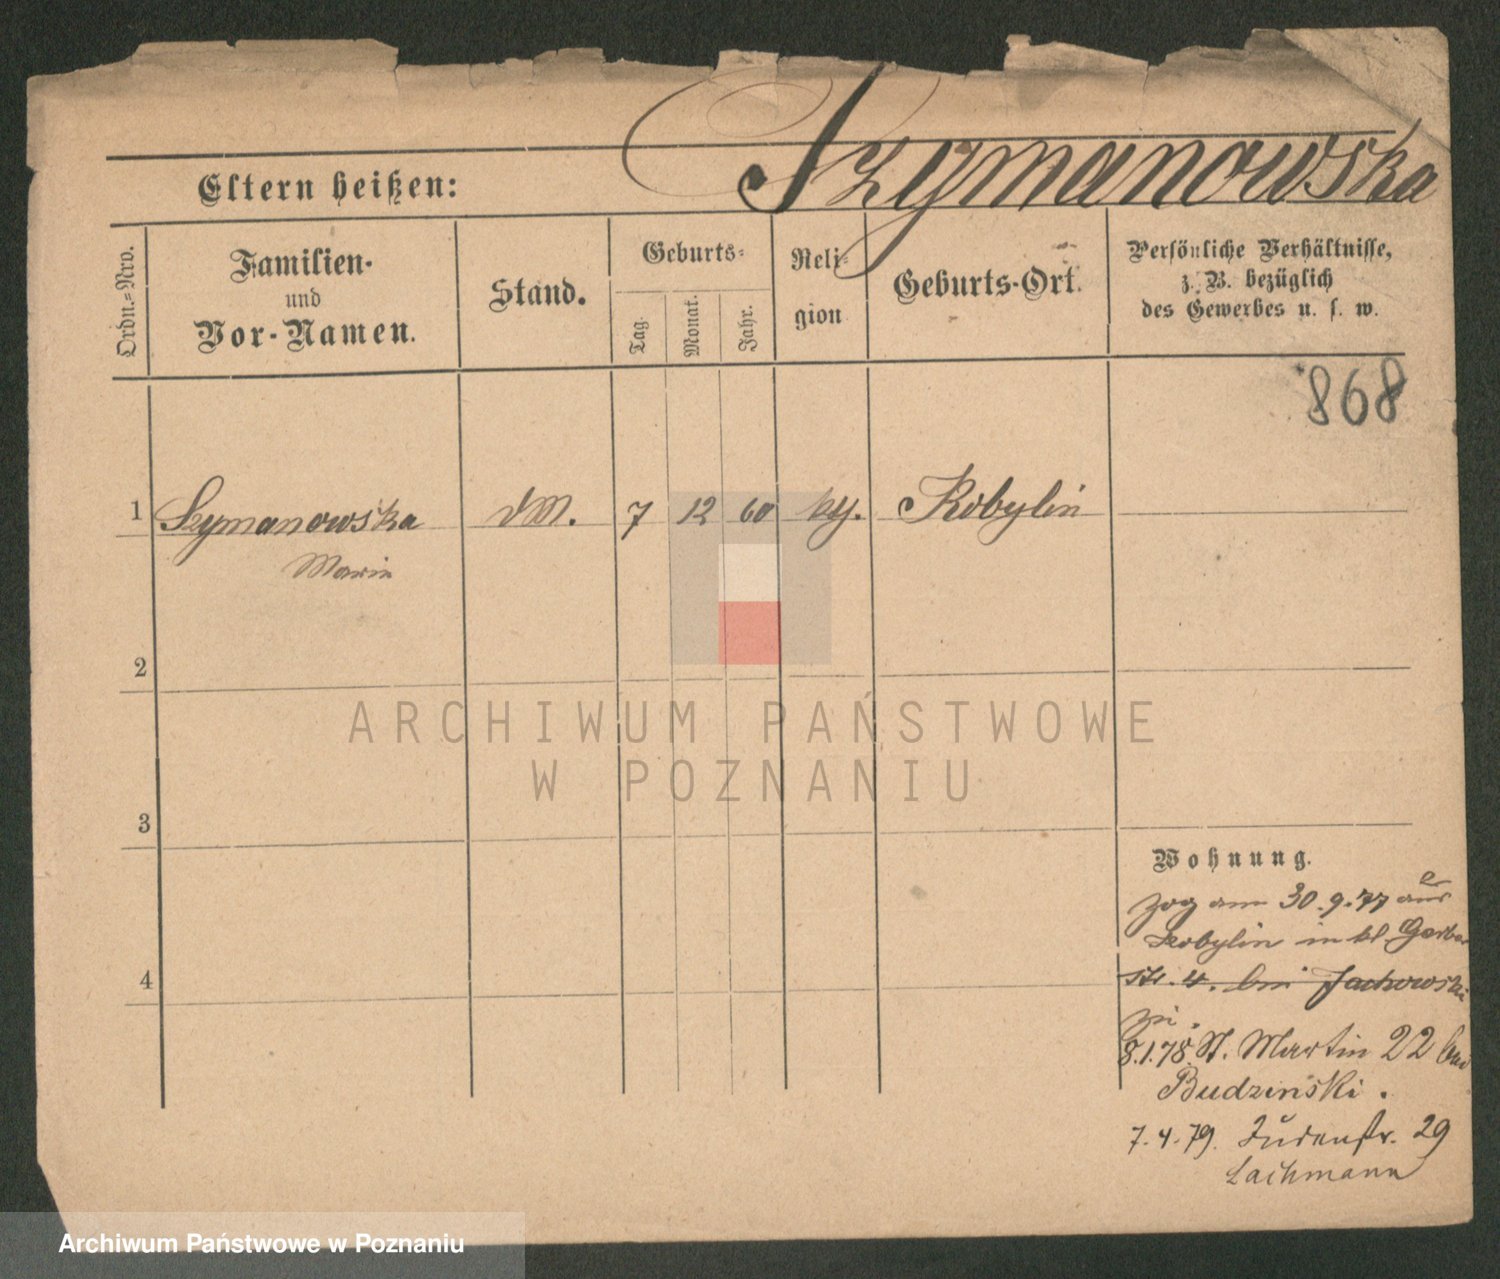 Szymanowska
Eltern heißen:
Ordn.=Nro.
Familien-
und
Vor-Namen.
Stand.
Geburts=
Tag.
Monat.
Jahr.
Reli-
gion
Geburts-Ort.
Persönliche Verhältnisse,
z. B. bezüglich
des Gewerbes u. s. w.
868
1 Szymanowska 7 12 60 Kobylin
Marie
2
3
4
Wohnung.
zog am 30.9.77 aus
Kobylin in kl Gerber
str. 4. bei Jachowski
zu.
8.1.78. St. Martin 22 bei
Budzinski.
7.4.79. Judenstr. 29
Lachmann
ARCHIWUM PAŃSTWOWE
W POZNANIU
Archiwum Państwowe w Poznaniu